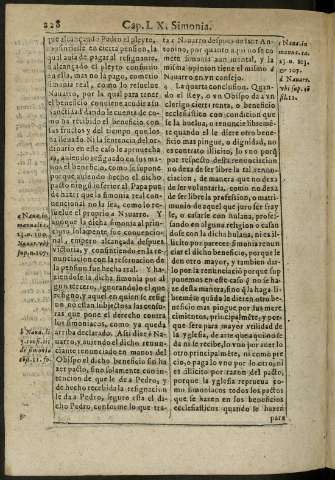 228
Cap. LX. Simonia.
que alcançando Pedro el pleyto,
pusiesse en cierta pension, la
qual auia de pagar el resignante,
alcançando el pleyto consumo
en ella, mas no la pago, cometio
simonia real, como lo resolue
Nauarro, por la qual para tener
el beneficio conviene acudir a su
Sanctidad dando le cuenta de co-
mo ha recibido el beneficio con
sus fructos y del tiempo que los
ha tenido. Ni la sentencia del or-
dinario en este caso le aprouecha
ra, auiendo resignado en sus ma-
nos el beneficio, como se supone
porque auiendo hecho el dicho
pacto ningũ inferior al Papa pue
de hazer que la simonia real con-
uencional no lo sea, como lo re-
suelue el proprio a Nauarro. Y
aunque la dicha simonia al prin-
cipio solapente, fue conuencio-
nal, empero alcançada despues
victoria, y consintiendo en la re-
nunciacion con la reseruacion de
la pension fue hecha real. Y ha-
ziendose la dicha simonia por al
gun tercero, ignorandolo el que
resigna, y aquel en quien se resig
na, no estan subjectos a las censu-
ras que pone el derecho contra
los simoniacos, como ya queda
arriba declarado. Assi dize b Na-
uarro, y auiendo el dicho renun-
ciante renunciado en manos del
Obispo el dicho beneficio sin ha
zer pacto, sino solamente con in-
tencion de que le de a Pedro, y
de hecho recibida la resignacion
le de a Pedro, seguro esta el di-
cho Pedro, conforme lo que tra-
a Nauar. in
manua. li.
23. n. 103.
Nauar. vbi
sup. n. 107.
b Naua. li.
5. conf. tit.
de simonia
consi. 11. fo.
ta c Nauarro despues de san An-
tonino, por quanto aqui no se co
mete simonia aun mental, y la
misma opinion tiene el mismo d
Nauarro en vn consejo.
4. La quarta conclusion. Quan-
do el Rey, o vn Obispo da a vn
clerigo cierta renta, o beneficio
ecclesiastico con condicion que
se le buelua, o renuncie libremen
te quando el le diere otro bene-
ficio mas pingue, o dignidad, no
es contrato illicito, lo vno porq̃
por respecto desta renunciacion
no dexa de ser libre la tal renun-
ciacion, de manera que no dexa
de ser voluntaria, como no dexa
de ser libre la profession, o matri-
monio de aquel que juro ser fray
le, o casarse con fulana, profes-
sando en alguna religion o casan
dose con la dicha fulana, ni es il-
licito por parecer simonia renun
ciar el dicho beneficio, porque le
den otro mayor, y tambien dar-
lo por la renunciacion porque sup
ponemos en este caso q̃ no se ha-
ze desta manera, sino q̃ la haga li-
bremẽte quãdo le dieren otro be-
neficio mas pingue por sus mere
cimientos, principalmẽte, y por-
que sera para mayor vtilidad de
la yglesia, de arte que a quiẽ lo
da ni le recibe, lo vno por auer lo
otro principalmẽte, ni como pre
cio, o pago lo vno por lo otro; ni
es illicito por razon del pacto,
porque la yglesia reprueua co-
mo simoniacos todos los pactos
que se hazen en los beneficios
ecclesiasticos quando se hazen
para
c Naua. in
manua. c.
23. n. 103.
&er 107.
d Nauarr.
vbi sup. co
sil. 11.